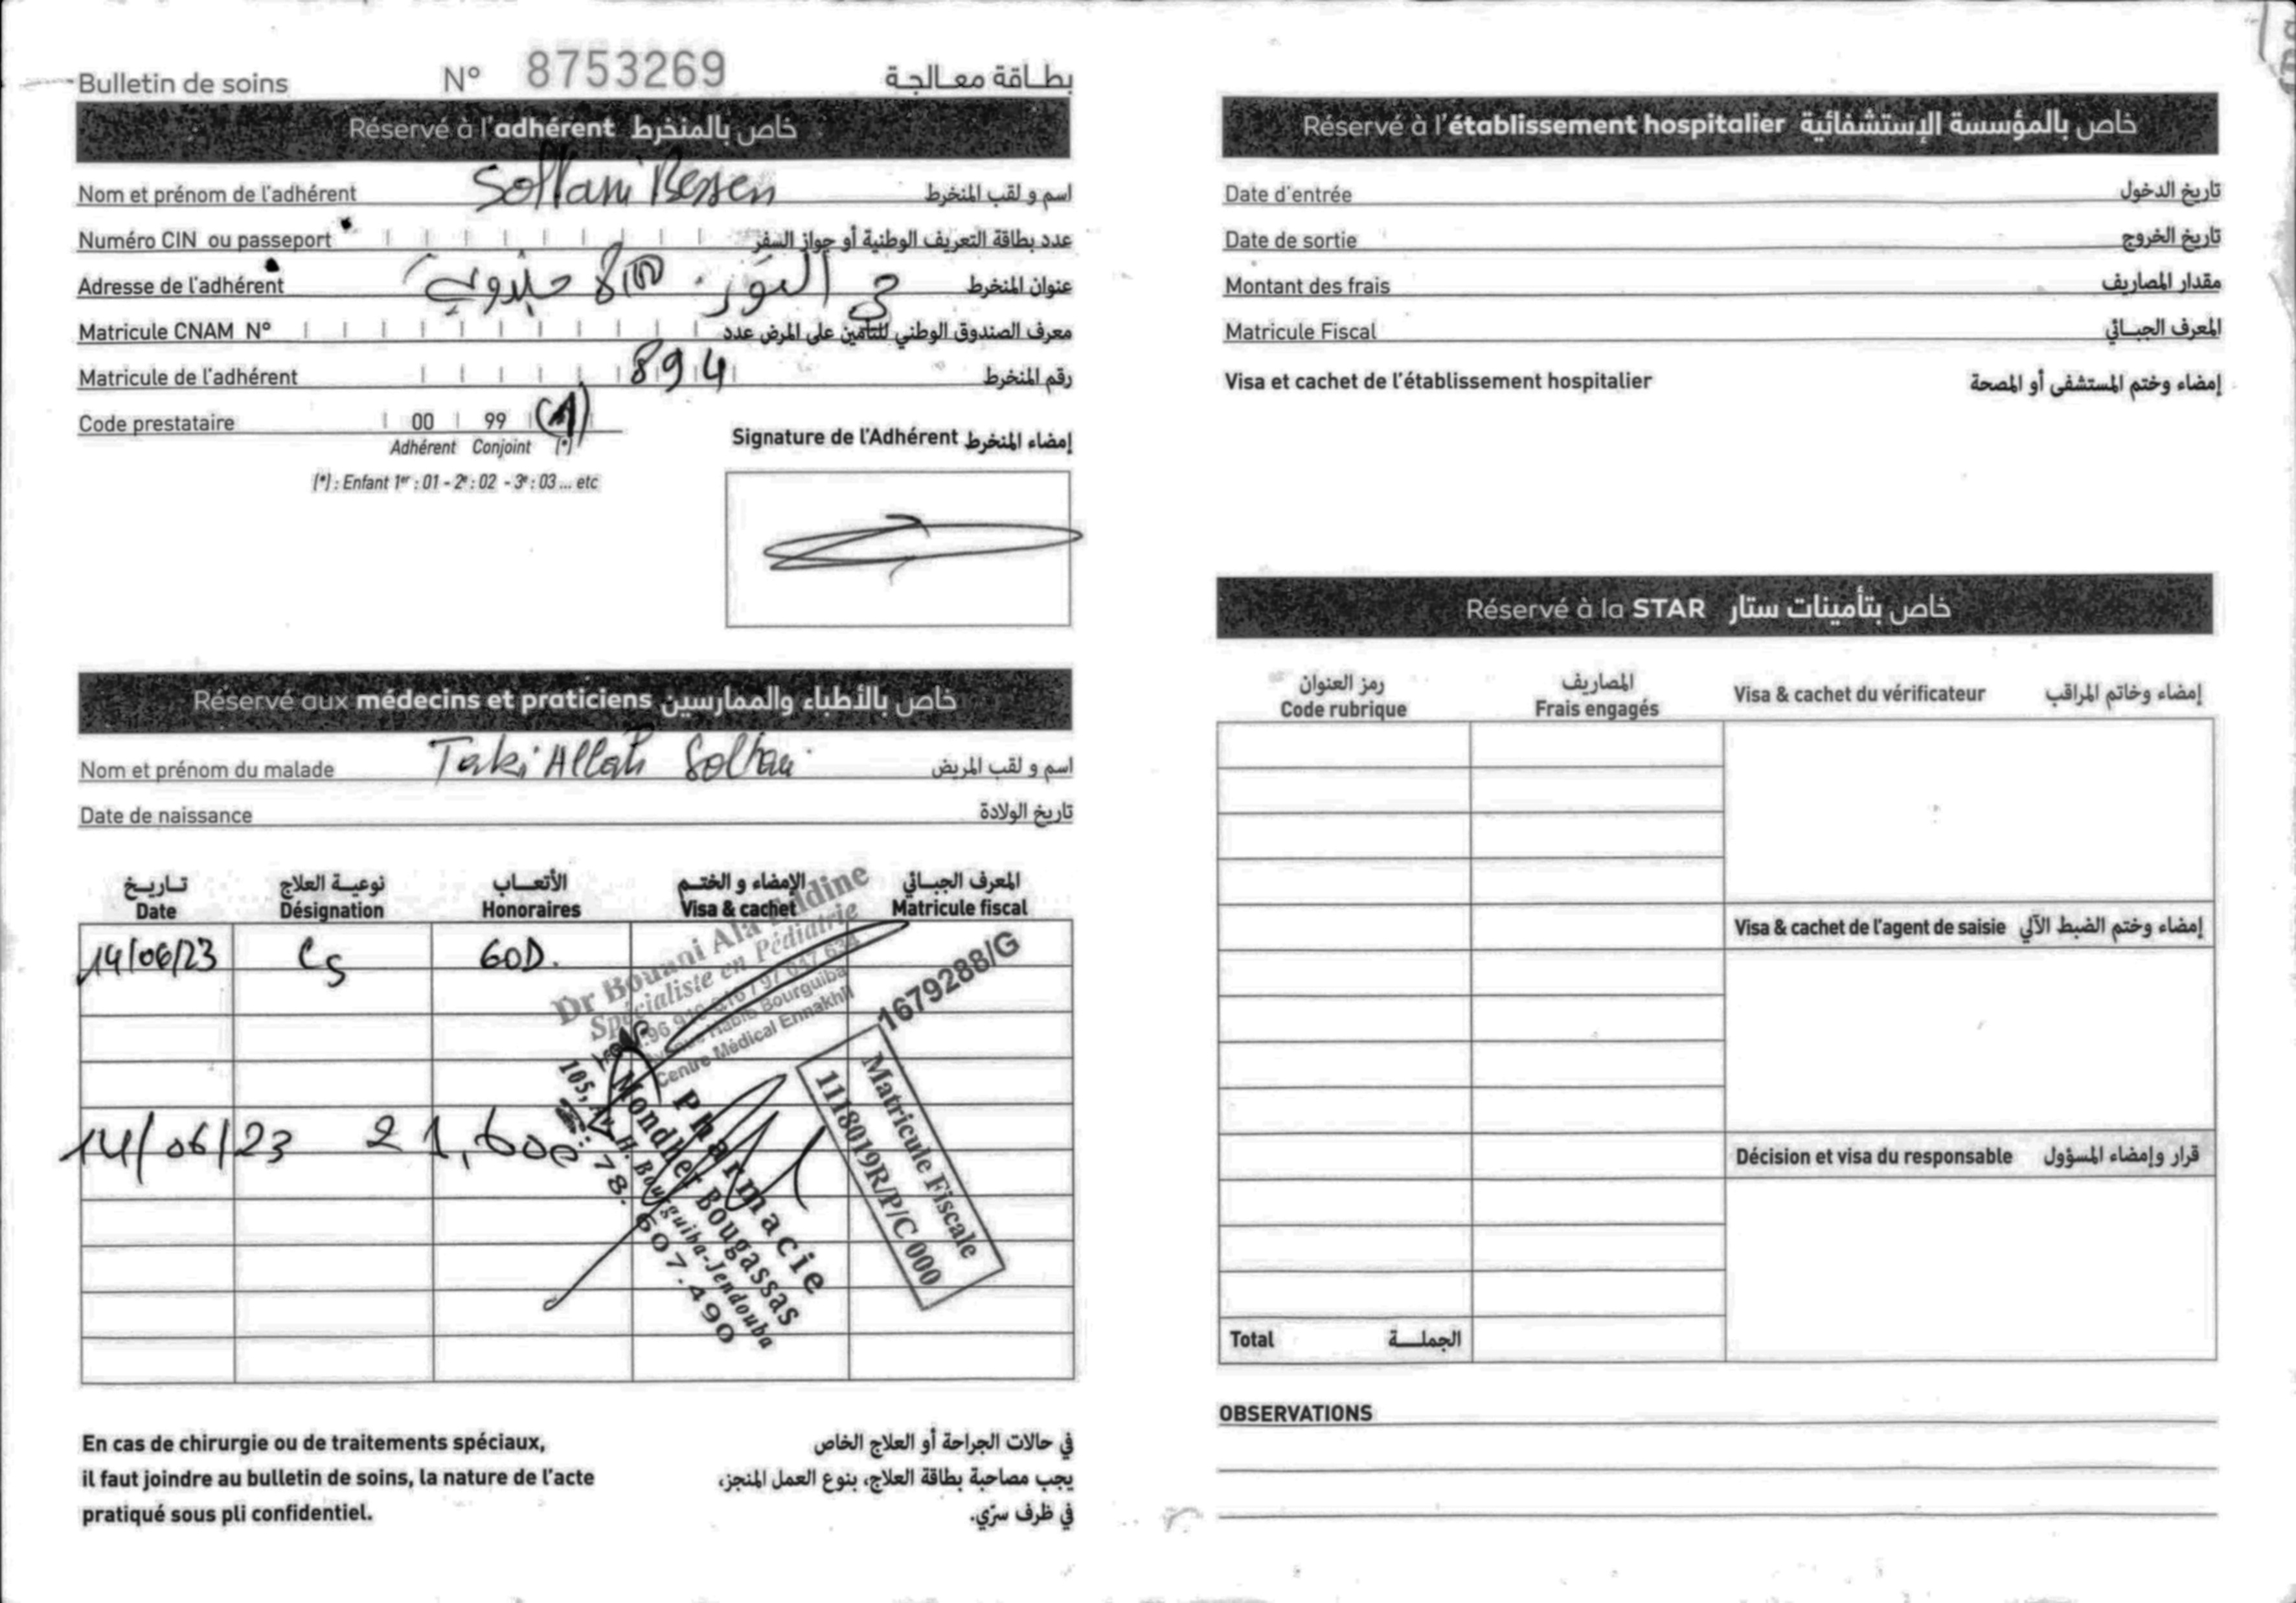 Bulletin de soins N° 8753269 بطاقة معالجة
Réservé à l'adhérent خاص بالمنخرط
Nom et prénom de l'adhérent Soltani اسم و لقب المنخرط
Numéro CIN ou passeport عدد بطاقة التعريف الوطنية أو جواز السفر
Adresse de l'adhérent حي النور 8100 جندوبة عنوان المنخرط
Matricule CNAM N° معرف الصندوق الوطني للتأمين على المرض عدد
Matricule de l'adhérent 894 رقم المنخرط
Code prestataire 00 99
Adhérent Conjoint (*)
(*) : Enfant 1er : 01 - 2e : 02 - 3e : 03 ... etc
Signature de l'Adhérent إمضاء المنخرط
Réservé aux médecins et praticiens خاص بالأطباء والممارسين
Nom et prénom du malade Taki Allah Soltani اسم و لقب المريض
Date de naissance تاريخ الولادة
تاريخ نوعية العلاج الأتعاب الإمضاء و الختم المعرف الجبائي
Date Désignation Honoraires Visa & cachet Matricule fiscal
14/06/23 Cs 60D.
Dr Bouani Ala Eddine
Spécialiste en Pédiatrie
Avenue Habib Bourguiba
Centre Médical Ennakhil
1679288/G
14/06/23 21,600
Pharmacie
Mondher Bougassas
105, Av. H. Bourguiba-Jendouba
78.607.490
Matricule Fiscale
1118019R/P/C 000
En cas de chirurgie ou de traitements spéciaux,
il faut joindre au bulletin de soins, la nature de l'acte
pratiqué sous pli confidentiel.
في حالات الجراحة أو العلاج الخاص
يجب مصاحبة بطاقة العلاج، بنوع العمل المنجز،
في ظرف سرّي.
Réservé à l'établissement hospitalier خاص بالمؤسسة الإستشفائية
Date d'entrée تاريخ الدخول
Date de sortie تاريخ الخروج
Montant des frais مقدار المصاريف
Matricule Fiscal المعرف الجبائي
Visa et cachet de l'établissement hospitalier إمضاء وختم المستشفى أو المصحة
Réservé à la STAR خاص بتأمينات ستار
رمز العنوان المصاريف
Code rubrique Frais engagés Visa & cachet du vérificateur إمضاء وخاتم المراقب
Visa & cachet de l'agent de saisie إمضاء وختم الضبط الآلي
Décision et visa du responsable قرار وإمضاء المسؤول
Total الجملة
OBSERVATIONS